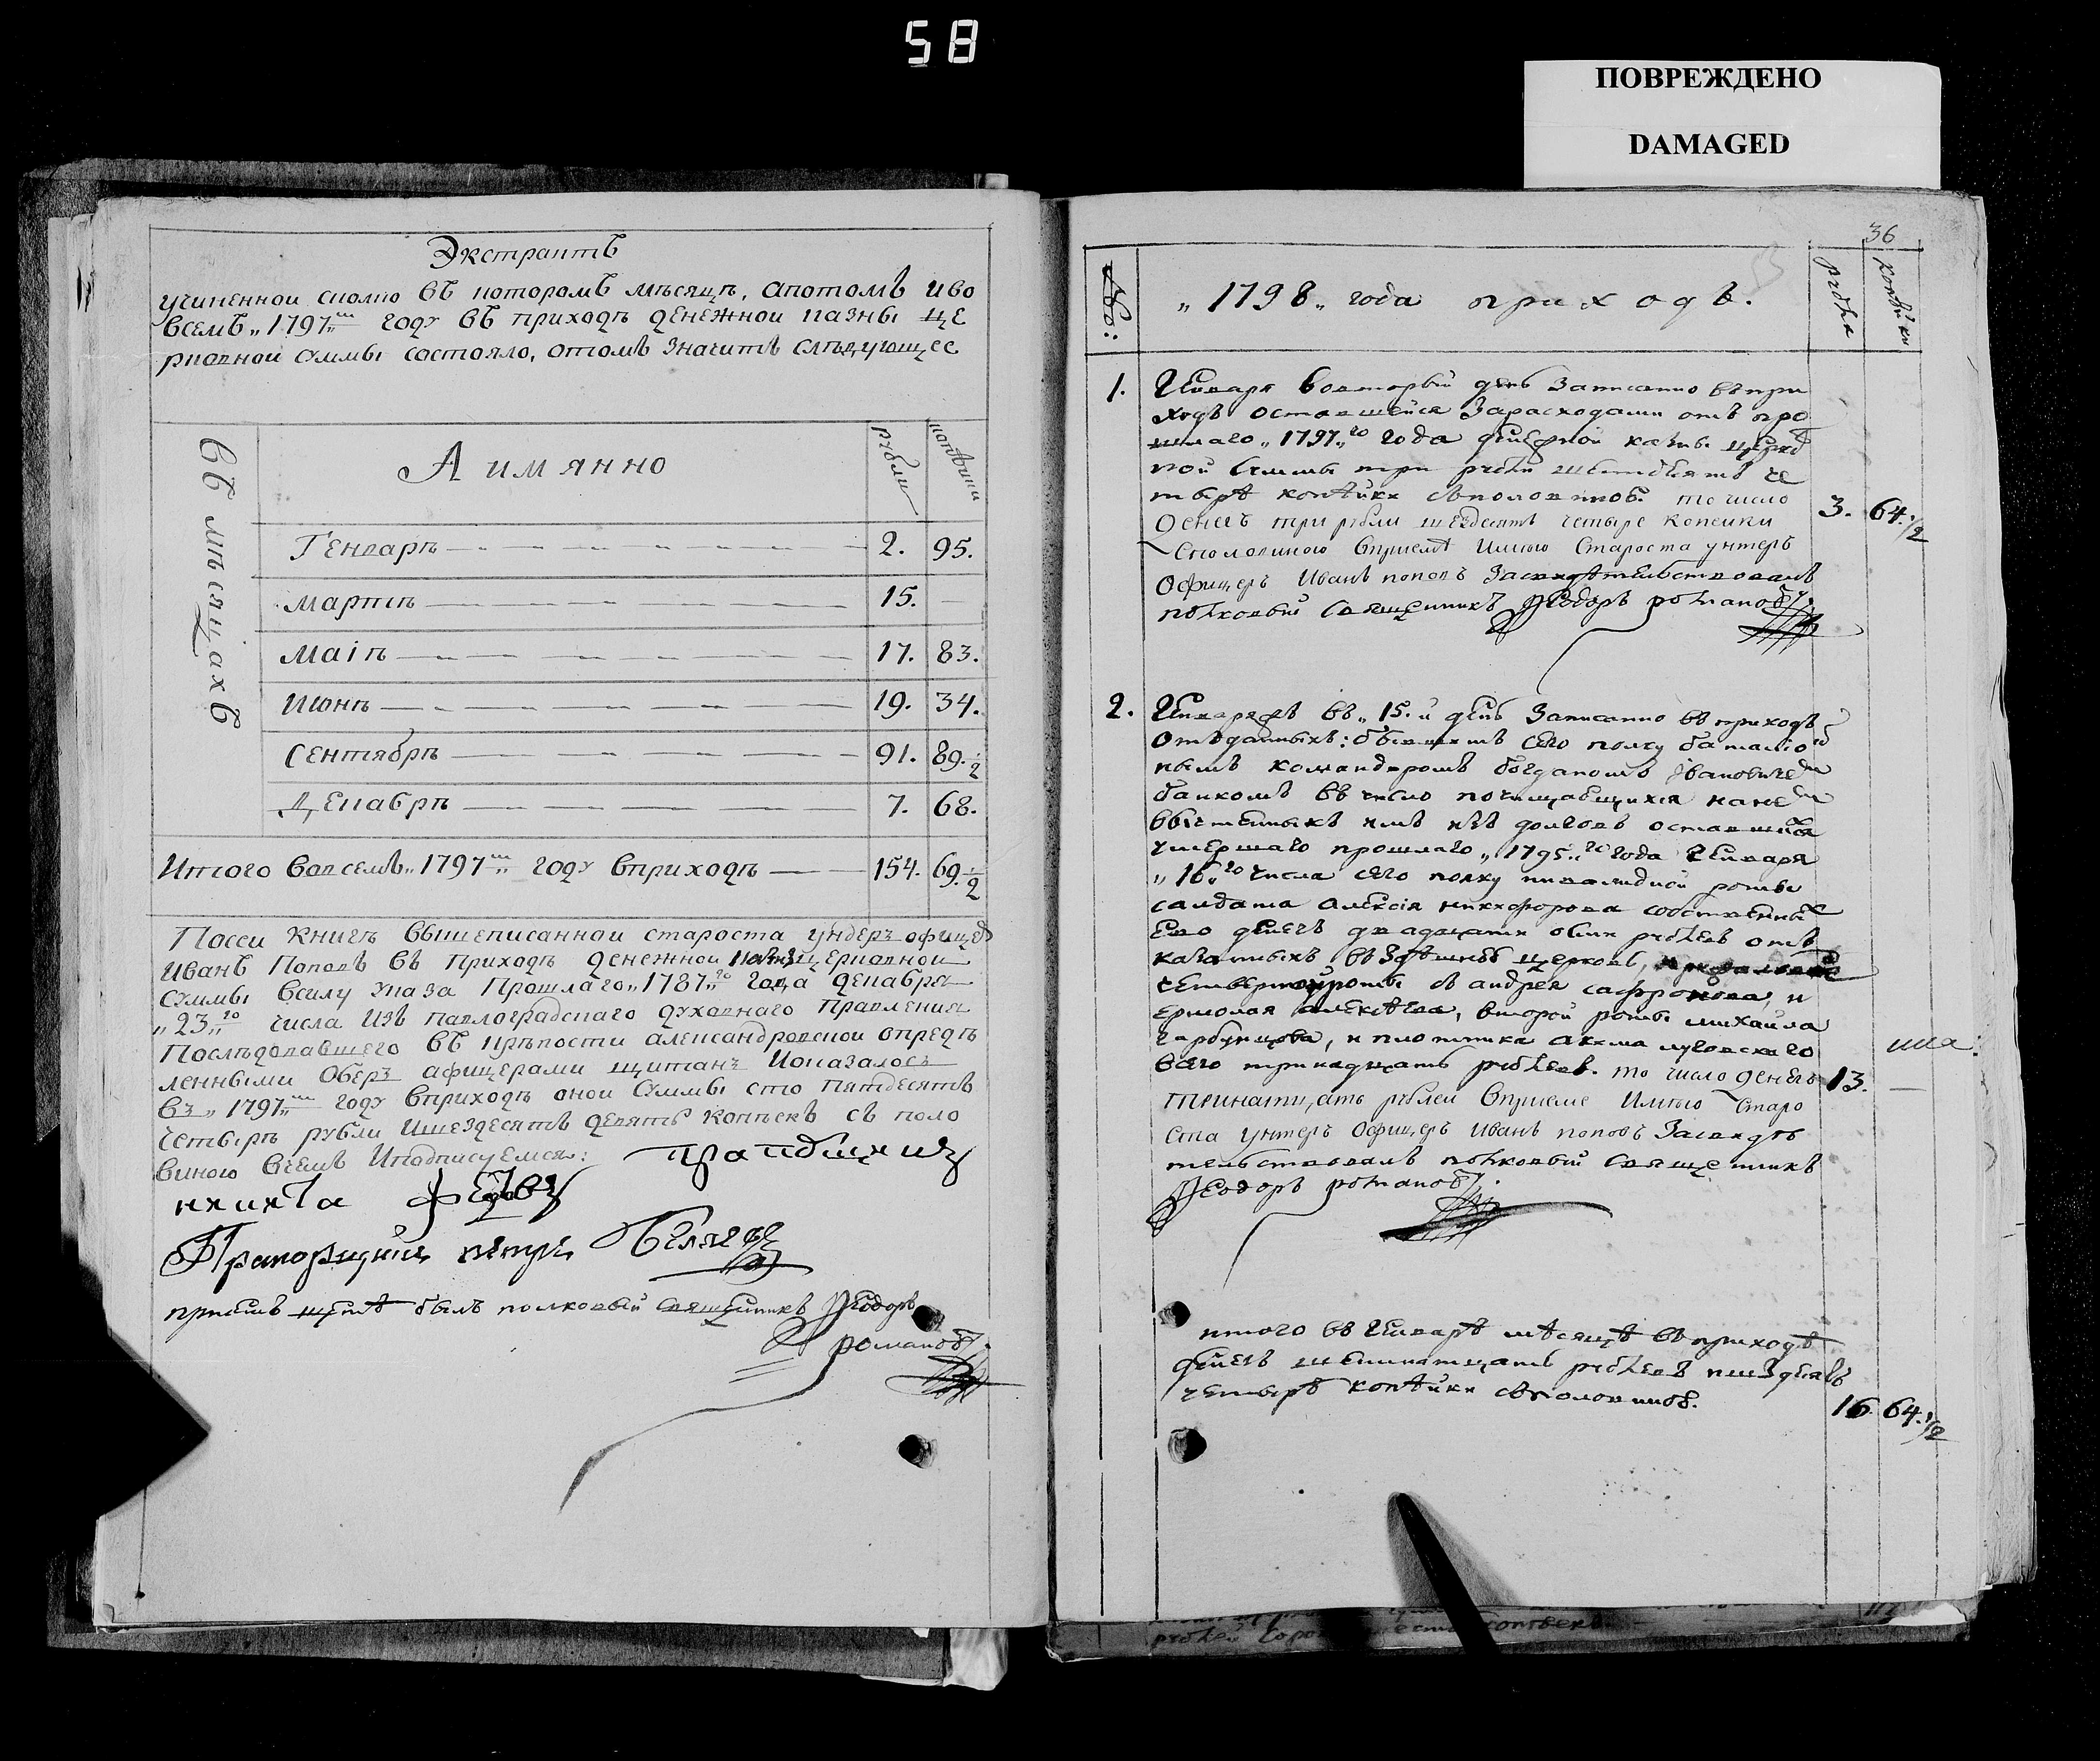 58
ПОВРЕЖДЕНО
DAMAGED
Экстрактъ
учиненной сколко въ которомъ мѣсяцѣ, апотомъ иво
всемъ „1797„ м году въ приходѣ денежной казны це
рковной суммы состояло, отомъ значитъ слѣдующее
въ мѣсяцахъ
А имянно
рубли
копѣики
Генварѣ 2. 95.
мартѣ 15.
маіѣ 17. 83.
июнѣ 19. 34.
сентябрѣ 91. 89. 1/2
декабрѣ 7. 68.
Итого вовсемъ „1797„ м году вприходѣ 154. 69. 1/2
Посеи книгѣ вышеписанной староста ундеръ офицеръ
Иванъ Поповъ въ приходѣ денежной казны церковной
суммы всилу указа прошлаго „1787„ го года декабря
„23„ го числа изъ павлоградскаго духовнаго правления
Послѣдовавшего въ крѣпости александровской опредѣ
ленными оберъ афицерами щитанъ Иоказалось
въ „1797„ м году вприходѣ оной суммы сто пятдесятъ
четырѣ рубли ишездесятъ девять копѣекъ съ поло
виною вчемъ Иподписуемся:
никита
Прапорщикъ петръ
приемъ щетѣ былъ полковый священникъ Феодоръ
романовъ
36
№:
„1798„ года приходъ.
рубли
копѣйки
1. Генваря вовторый день записанно въпри
ходъ оставшейся зарасходами отъ про
шлаго „1797„ го года денежной казны церков
ной суммы три рубли шездесятъ че
тырѣ копѣйки съполовиною. то число
денегъ три рубли шездесятъ четыре копейки
сполодиною вприемѣ Имѣю Староста унтеръ
Офицеръ Иванъ поповъ Засвидѣтельствовалъ
полковый священникъ Феодоръ романовъ.
3. 64. 1/2
2. Генваря въ „15.й день записанно въ приходъ
отъданныхъ: бывшимъ сего полку баталіо
нымъ командиромъ богданомъ Ивановичем
въ число
имъ изъ долговъ оставших
умершаго прошлаго „1795„ го года Генваря
„16„ го числа сего полку инвалидной роты
салдата алексія никифорова собственных
ево денегъ двадцати осми рублевъ отъ
казанныхъ въ здѣшнюю церковь,
четвертой роты съ андрея сафронова, и
ермолая алексѣева, второй роты михайла
гарбунцова, и плотника акима луговскаго
всего тринадцать рублевъ. то число денегъ
13.
тринатцать рублей вприеме Имѣю Старо
ста унтеръ Офицеръ Иванъ поповъ Засвидѣ
тельствовалъ полковый священникъ
Феодоръ романовъ.
итого въ Генварѣ мѣсяцѣ въприходѣ
денегъ шеснатцать рублевъ ишездесятъ
четырѣ копѣйки съполовиною.
16. 64. 1/2